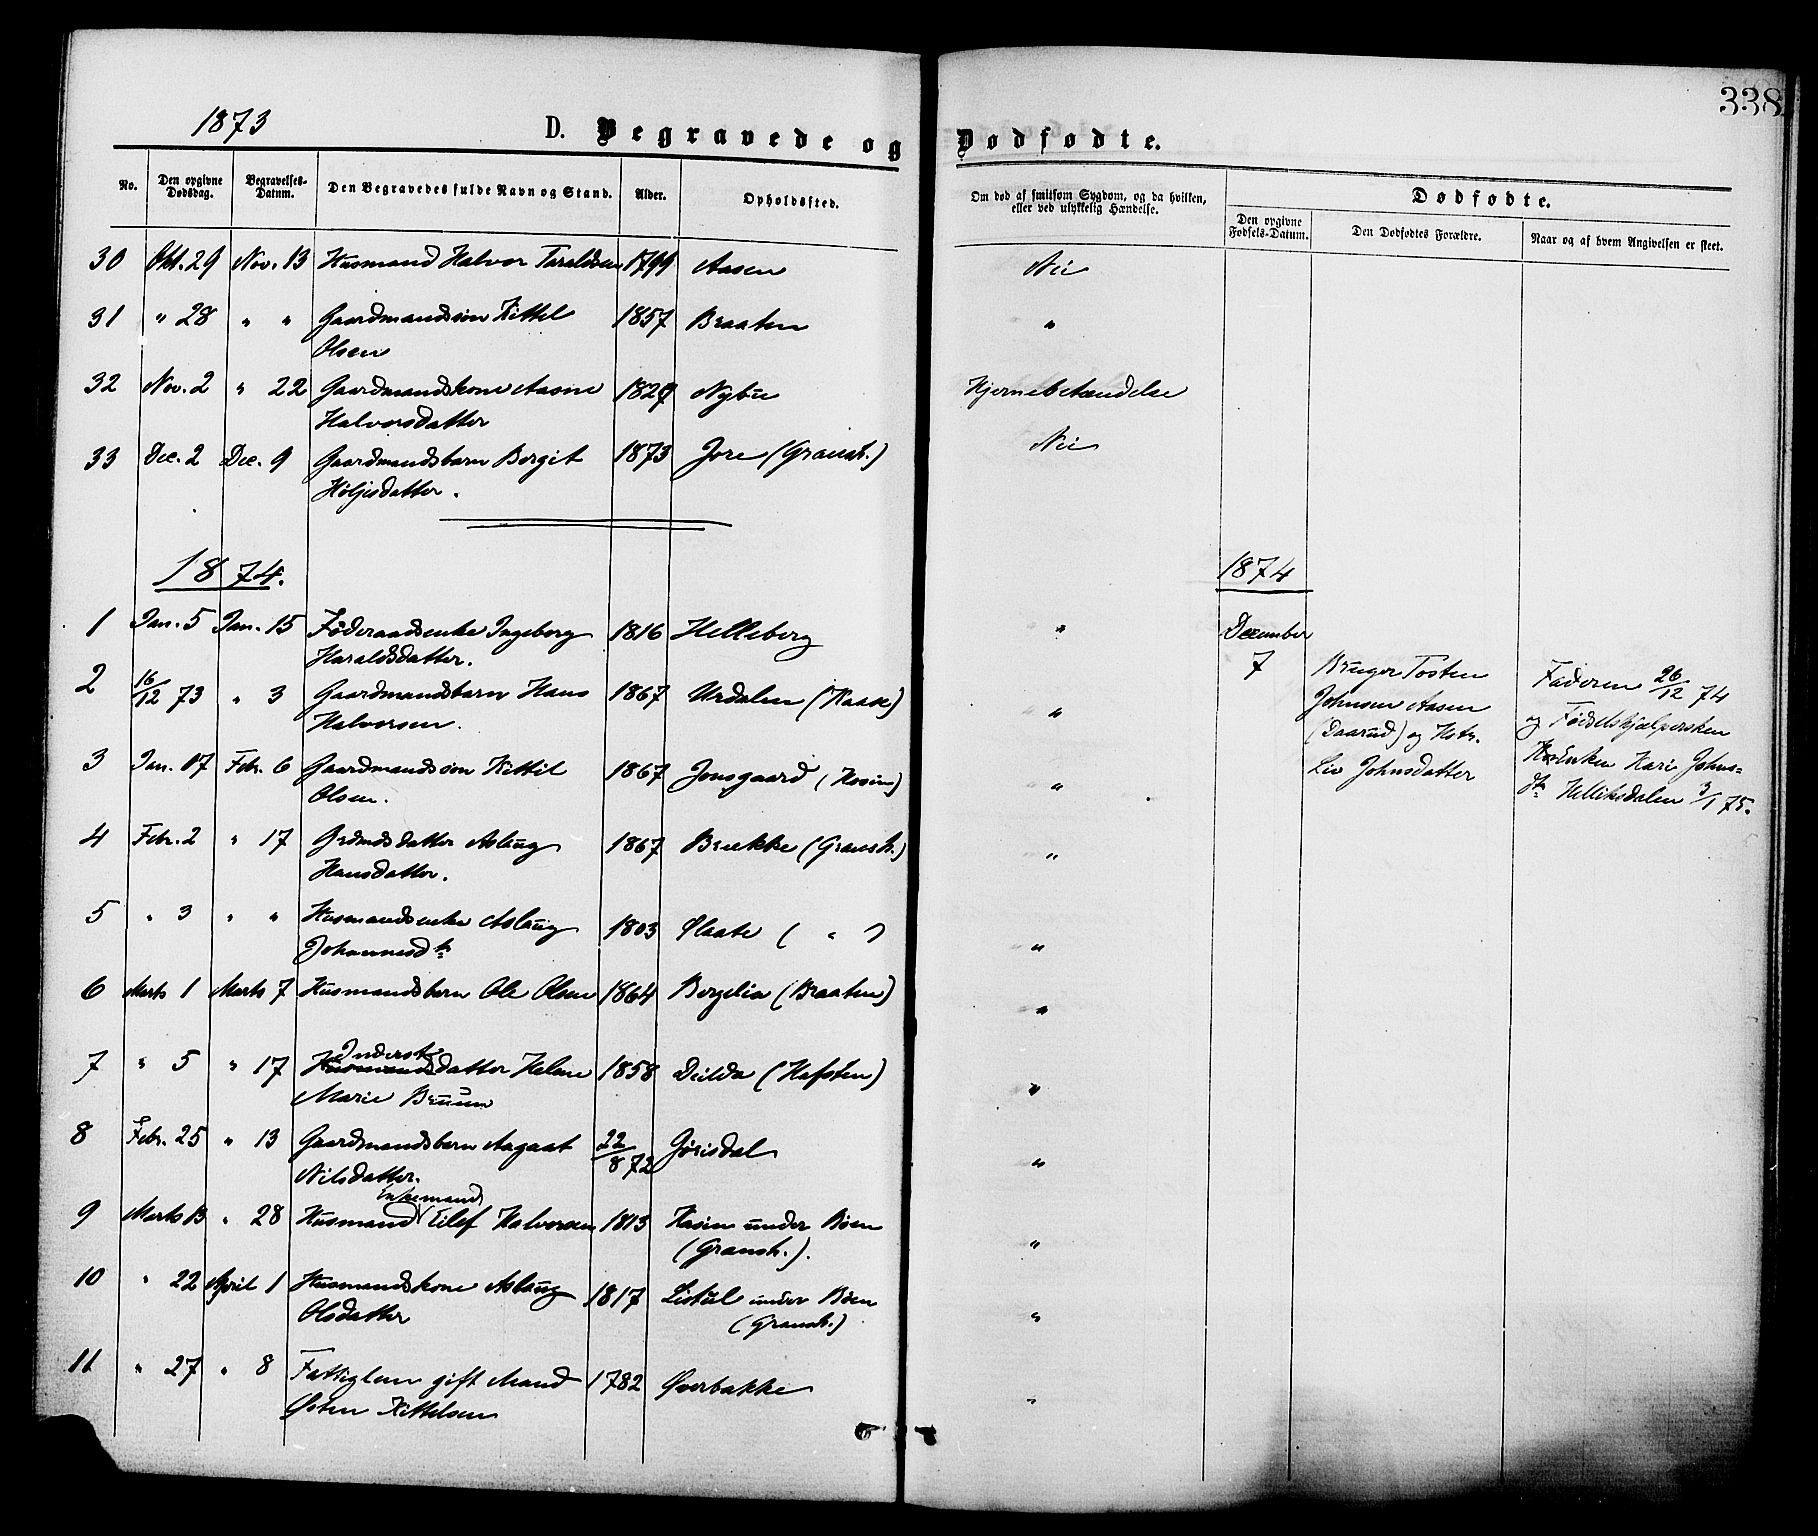 338
1873 D. Begravede og Dødfødte.
No. Den opgivne Dødsdag. Begravelses-Datum. Den Begravedes fulde Navn og Stand. Alder. Opholdssted. Om død af smitsom Sygdom, og da hvilken, eller ved ulykkelig Hændelse. Dødfødte.
Den opgivne Fødsels-Datum. Den Dødfødtes Forældre. Naar og af hvem Angivelsen er skeet.
30 Okt. 29 Nov. 13 Husmand Halvor Taraldsen 1799 Aasen Nei
31 " 28 " " Gaardmandssøn Kittel 1857 Braaten "
Olsen
32 Nov. 2 " 22 Gaardmandskone Aasne 1829 Nybu Hjernebetændelse
Halvorsdatter
33 Dec. 2 Dec. 9 Gaardmandsbarn Bergit 1873 Jore (Gransh.) Nei
Høljesdatter.
1874. 1874
1 Jan. 5 Jan. 15 Føderaadsenke Ingeborg 1816 Helleberg " December
Haraldsdatter.
2 16/12 73 " 3 Gaardmandsbarn Hans 1867 Urdalen (Kaase) " 7 Bruger Tosten Faderen 26/12 74
Halvorsen. Johnsen Aasen og Fødselshjælpersken
(Daarud) og Hstr. Enken Kari Johns-
3 Jan. 17 Febr. 6 Gaardmandssøn Kittil 1867 Jonsgaard (Hosins) " Liv Johnsdatter dtr Helliksdalen 3/1 75.
Olsen.
4 Febr. 2 " 17 Grdmdsdatter Aslaug 1867 Brukke (Gransh.) "
Hansdatter.
5 " 3 " " Husmandsenke Aslaug 1803 Plaate ( " ) "
Johannesdtr
6 Marts 1 Marts 7 Husmandsbarn Ole Olsen 1864 Bergelia (Braaten) "
Inderst
7 " 5 " 17 Husmandsdatter Helene 1858 Deilda (Hafsten) "
Marie Bruun
8 Febr. 25 " 13 Gaardmandsbarn Aagaat 22/8 72 Gjøisdal "
Nilsdatter.
Enkemand
9 Marts 13 " 28 Husmand Eilef Halvorsen 1813 Hasen under Bøen "
(Gransh.).
10 " 22 April 1 Husmandskone Aslaug 1817 Listul under Bøen "
Olsdatter (Gransh.)
11 " 27 " 8 Fattiglem gift Mand 1782 Øverbakke "
Østen Kittelsen